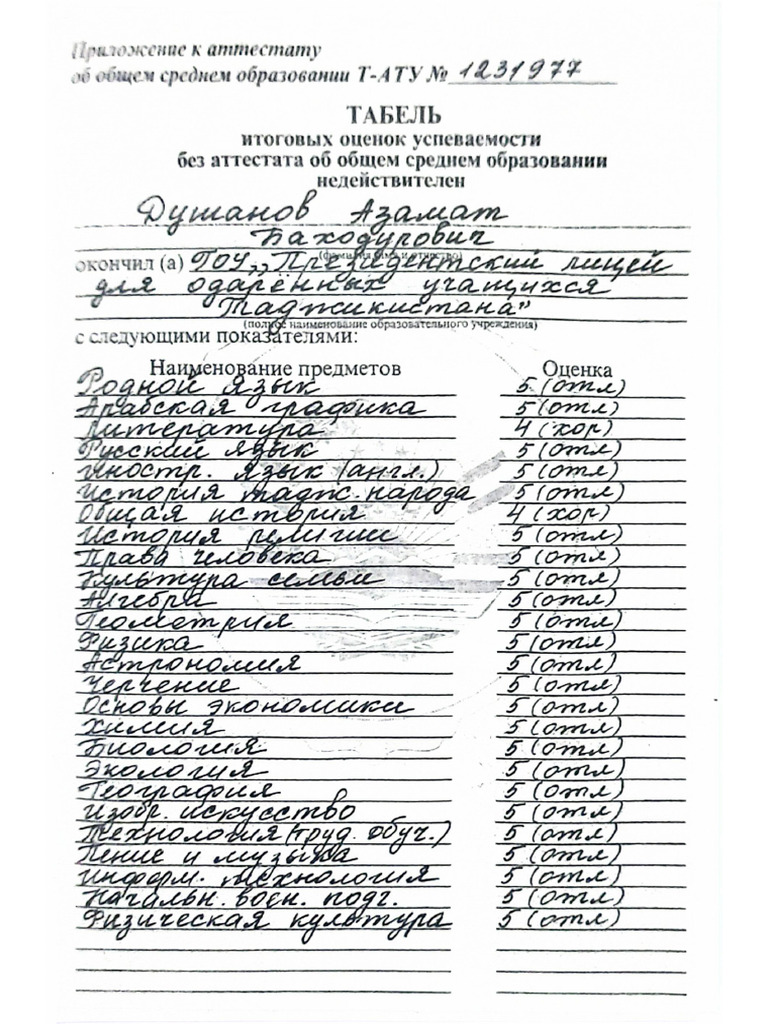 Приложение к аттестату
об общем среднем образовании Т-АТУ № 1231977
ТАБЕЛЬ
итоговых оценок успеваемости
без аттестата об общем среднем образовании
недействителен
Душанов Азамат
Баходурович
(фамилия, имя и отчество)
окончил (а) ГОУ „Президентский лицей
для одарённых учащихся
Таджикистана”
(полное наименование образовательного учреждения)
с следующими показателями:
Наименование предметов Оценка
Родной язык 5 (отл)
Арабская графика 5 (отл)
Литература 4 (хор)
Русский язык 5 (отл)
Иностр. язык (англ.) 5 (отл)
История тадж. народа 5 (отл)
Общая история 4 (хор)
История религии 5 (отл)
Права человека 5 (отл)
Культура семьи 5 (отл)
Алгебра 5 (отл)
Геометрия 5 (отл)
Физика 5 (отл)
Астрономия 5 (отл)
Черчение 5 (отл)
Основы экономики 5 (отл)
Химия 5 (отл)
Биология 5 (отл)
Экология 5 (отл)
География 5 (отл)
Изобр. искусство 5 (отл)
Технология (труд. обуч.) 5 (отл)
Пение и музыка 5 (отл)
Информ. технология 5 (отл)
Начальн. воен. подг. 5 (отл)
Физическая культура 5 (отл)